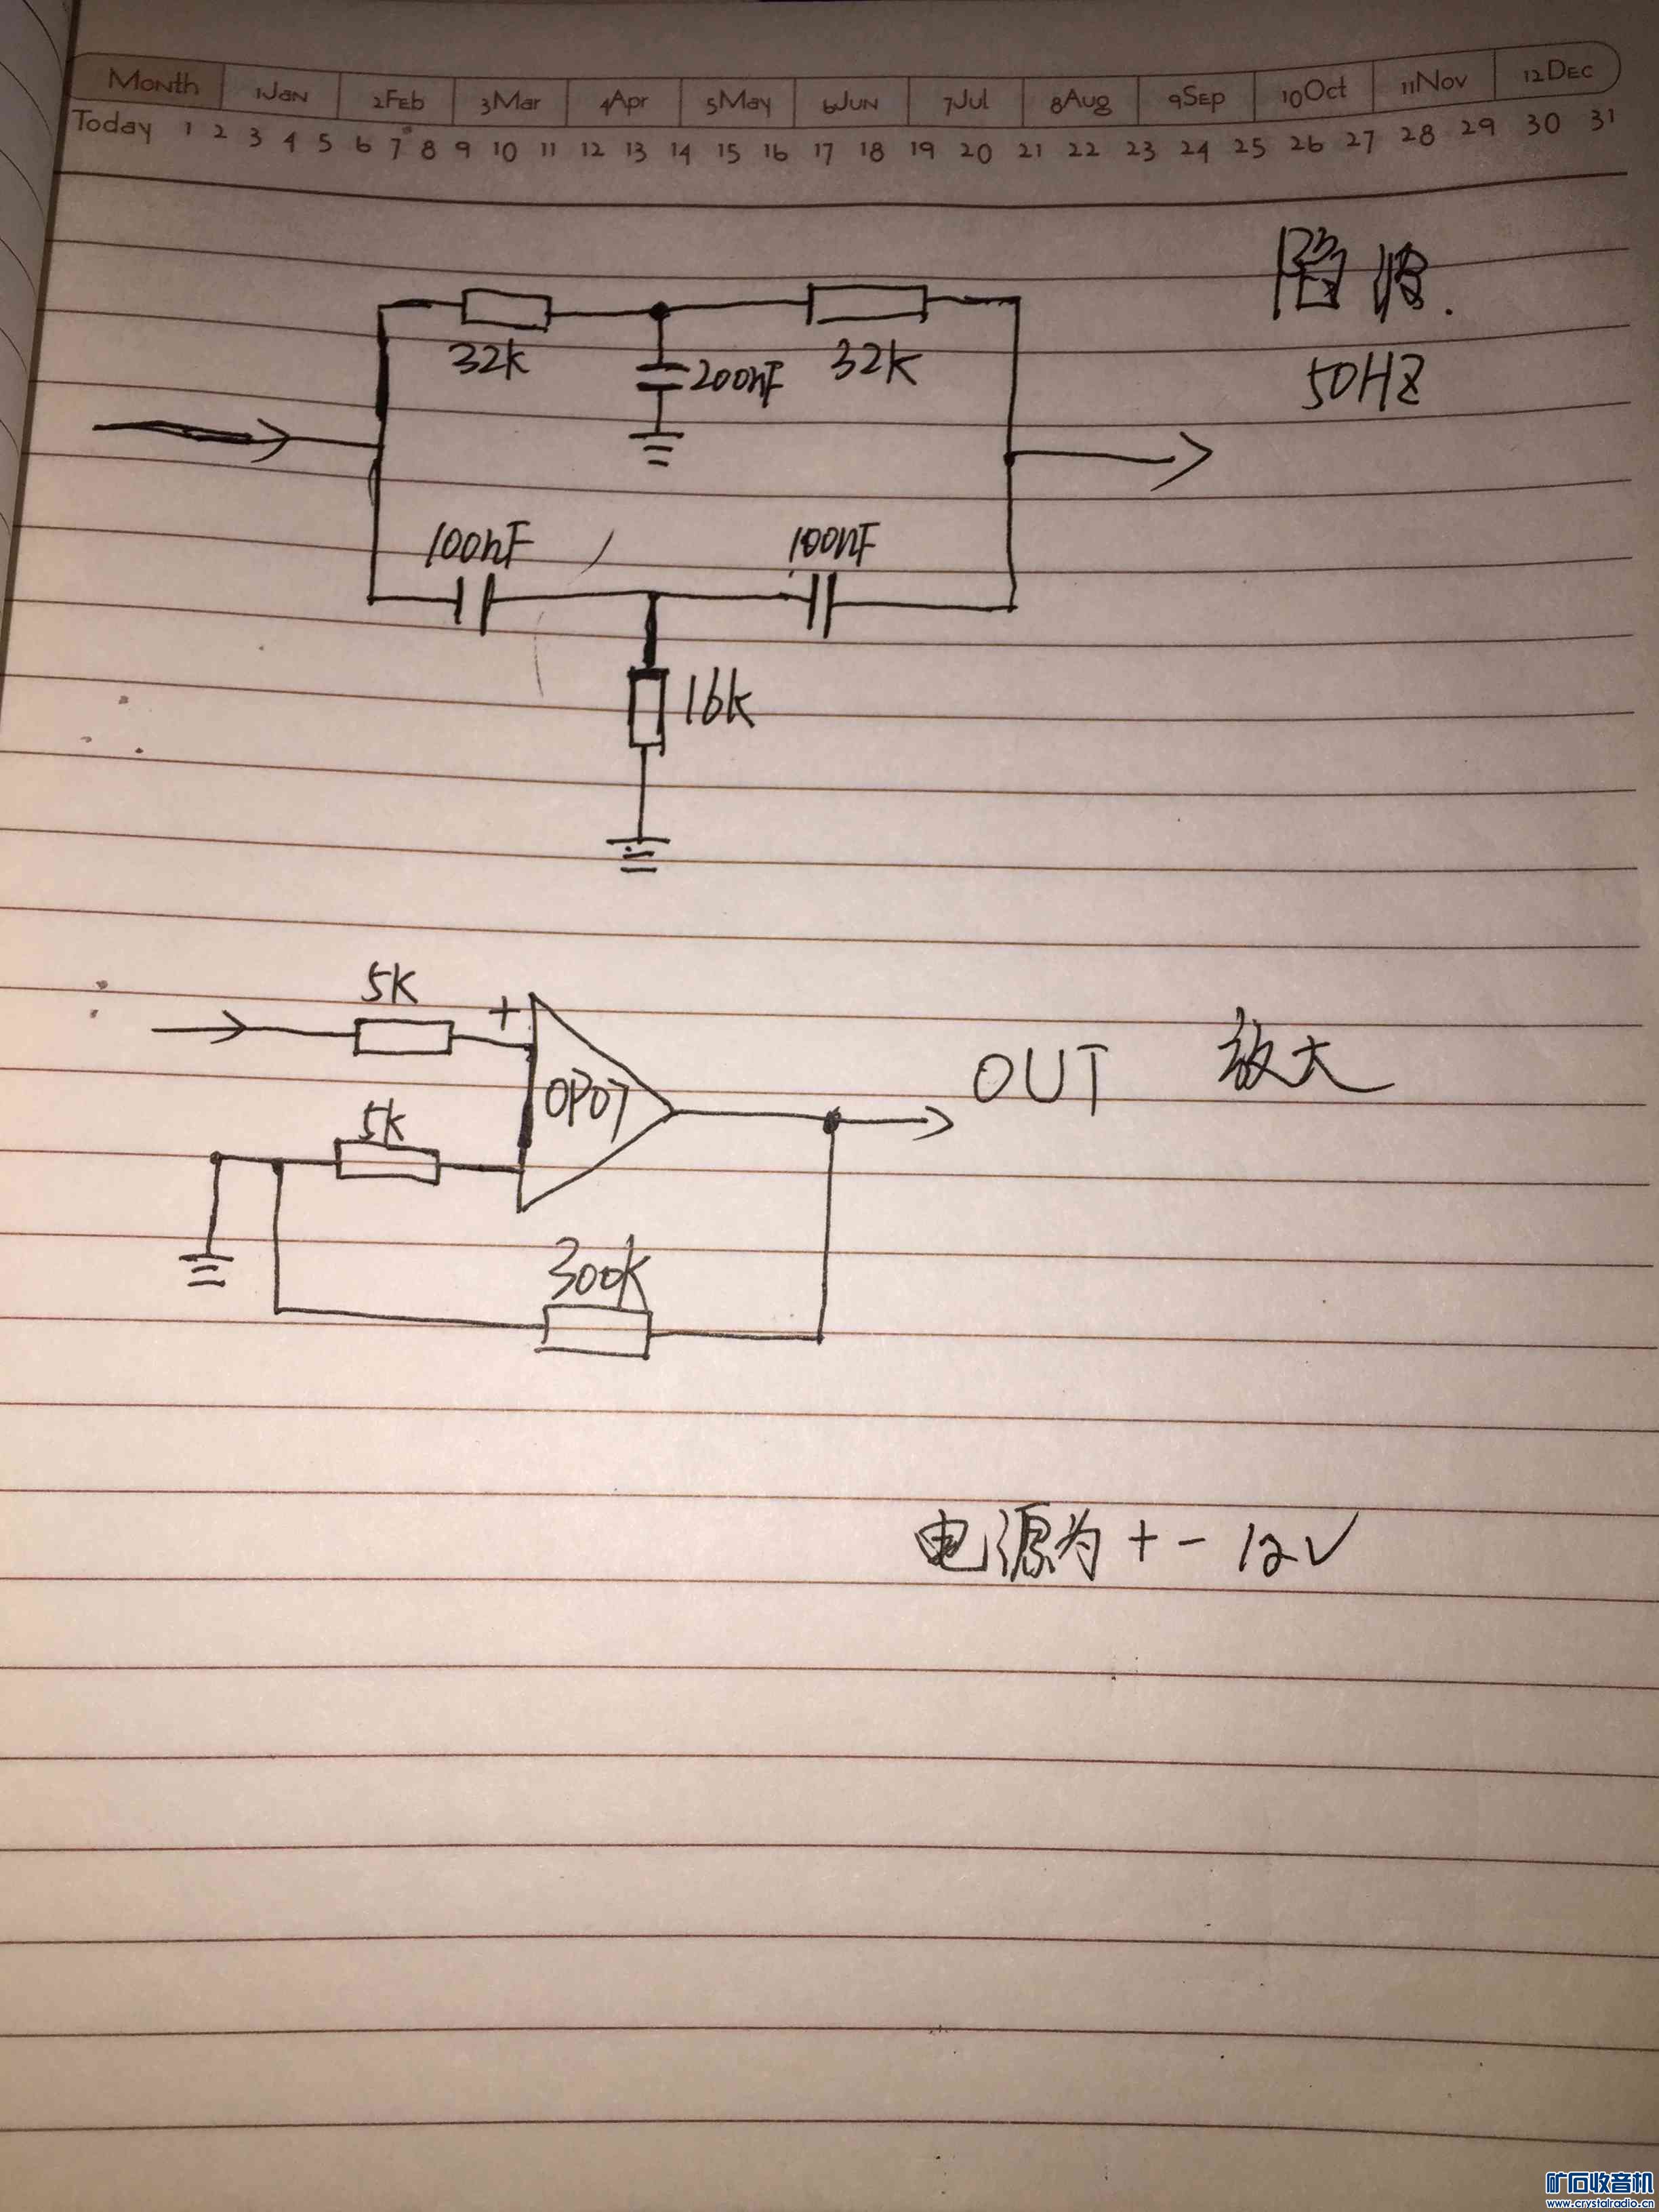 Month 1Jan 2Feb 3Mar 4Apr 5May 6Jun 7Jul 8Aug 9Sep 10Oct 11Nov 12Dec
Today 1 2 3 4 5 6 7 8 9 10 11 12 13 14 15 16 17 18 19 20 21 22 23 24 25 26 27 28 29 30 31
陷波.
32K 200nF 32K 50HZ
100nF 100nF
16k
5K
+
OP07 OUT 放大
5k
300K
电源为 + - 12V
矿石收音机
www.crystalradio.cn